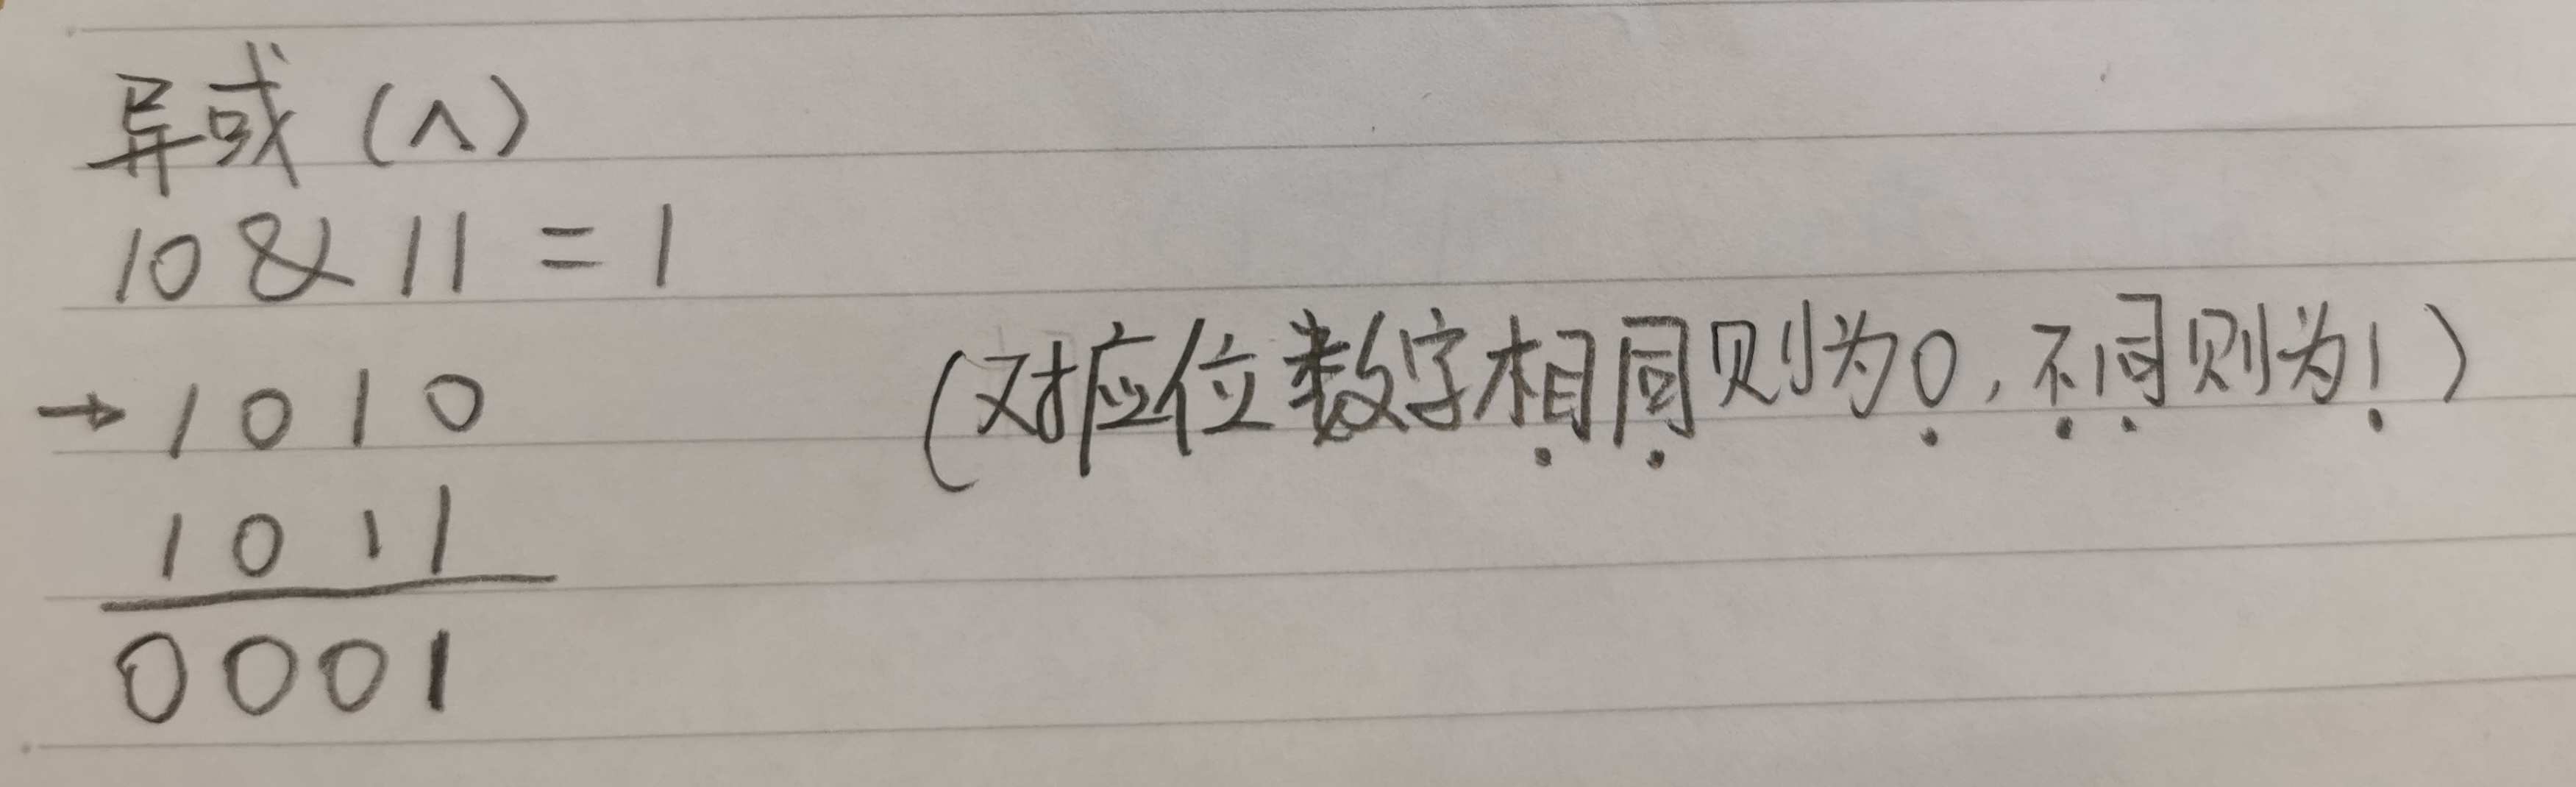 异或 (^)
10 & 11 = 1
→ 1 0 1 0 (对应位数字相同则为0, 不同则为1)
1 0 1 1
0 0 0 1